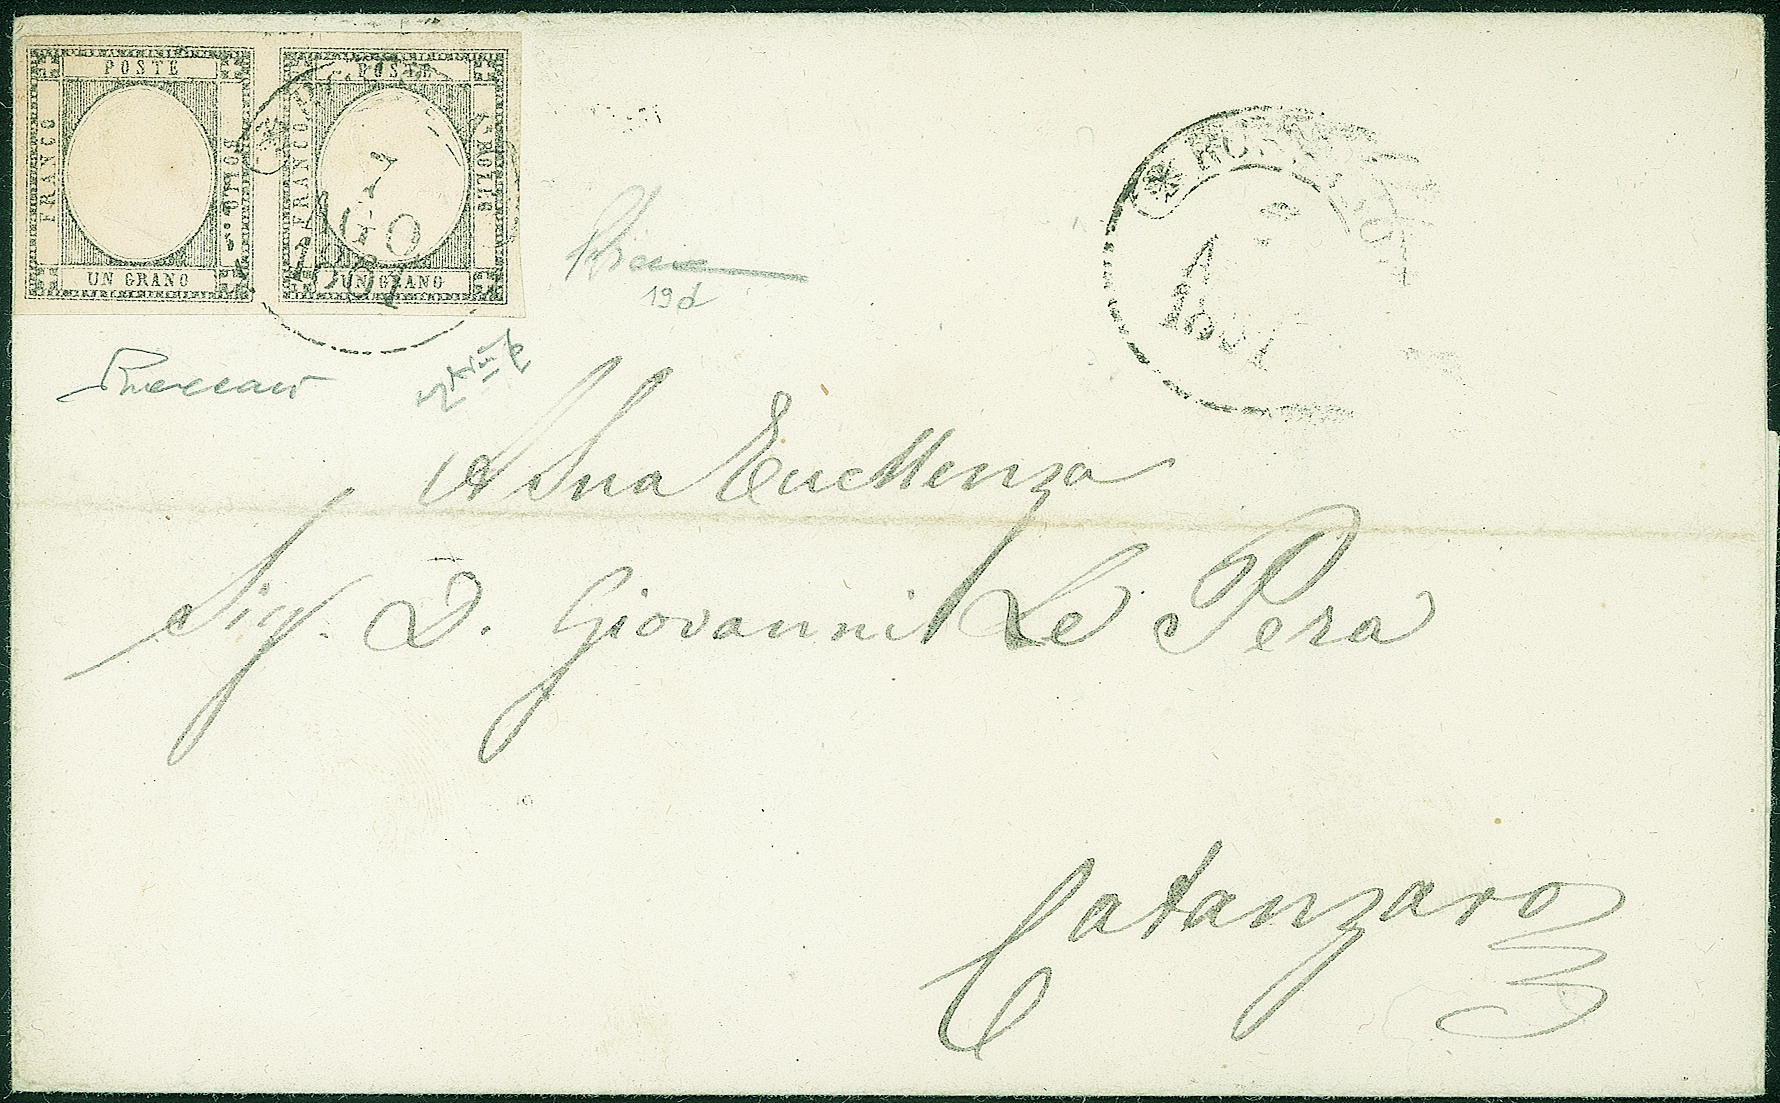 POSTE
FRANCO
BOLLO
UN GRANO
POSTE
FRANCO
BOLLO
UN GRANO
7
AGO
1861
1861
19d
A Sua Eccellenza
Sig. D. Giovanni Le Pera
Catanzaro